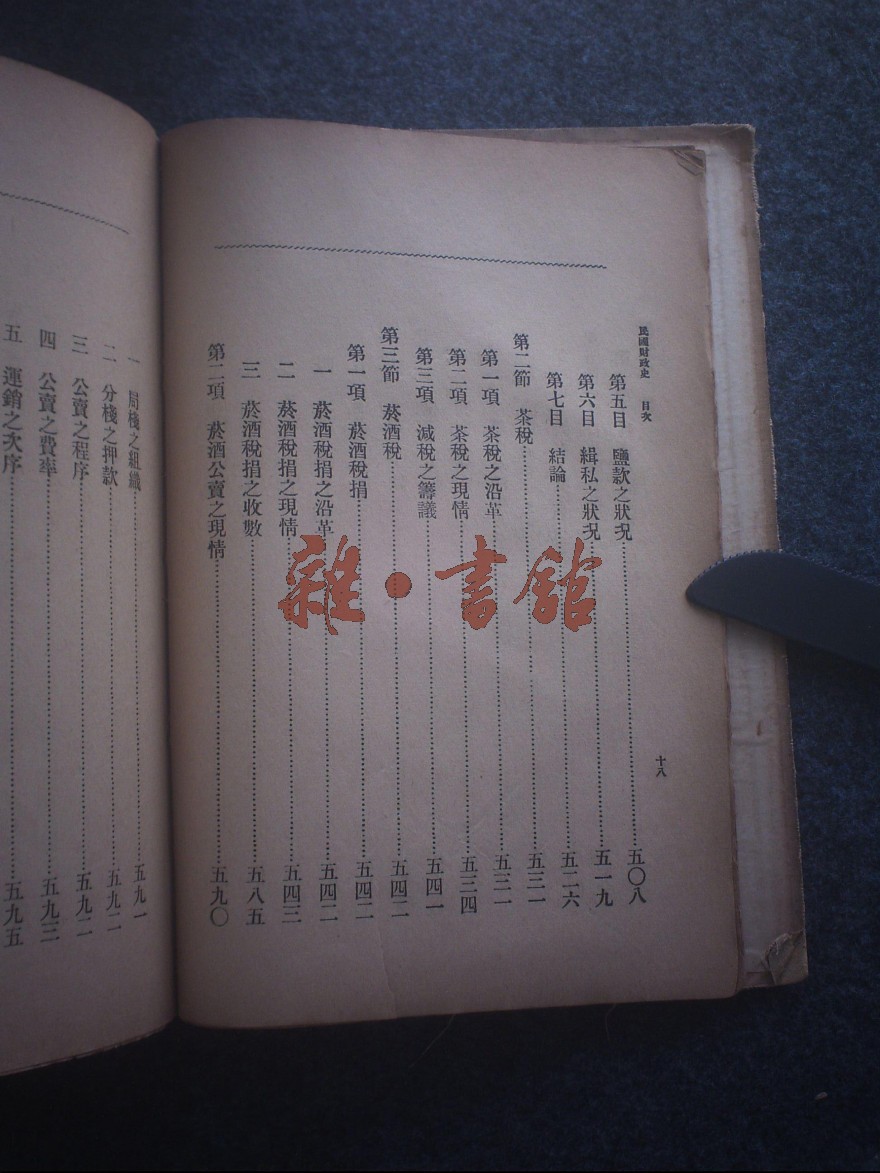 民國財政史 目次
十八
第五目 鹽款之狀況……五〇八
第六目 緝私之狀況……五一九
第七目 結論……五二六
第二節 茶稅……五三一
第一項 茶稅之沿革……五三一
第二項 茶稅之現情……五三四
第三項 減稅之籌議……五四一
第三節 菸酒稅……五四二
第一項 菸酒稅捐……五四二
一 菸酒稅捐之沿革……五四二
二 菸酒稅捐之現情……五四三
三 菸酒稅捐之收數……五八五
第二項 菸酒公賣之現情……五九〇
一 局棧之組織……五九一
二 分棧之押款……五九二
三 公賣之程序……五九二
四 公賣之費率……五九三
五 運銷之次序……五九五
雜·書館